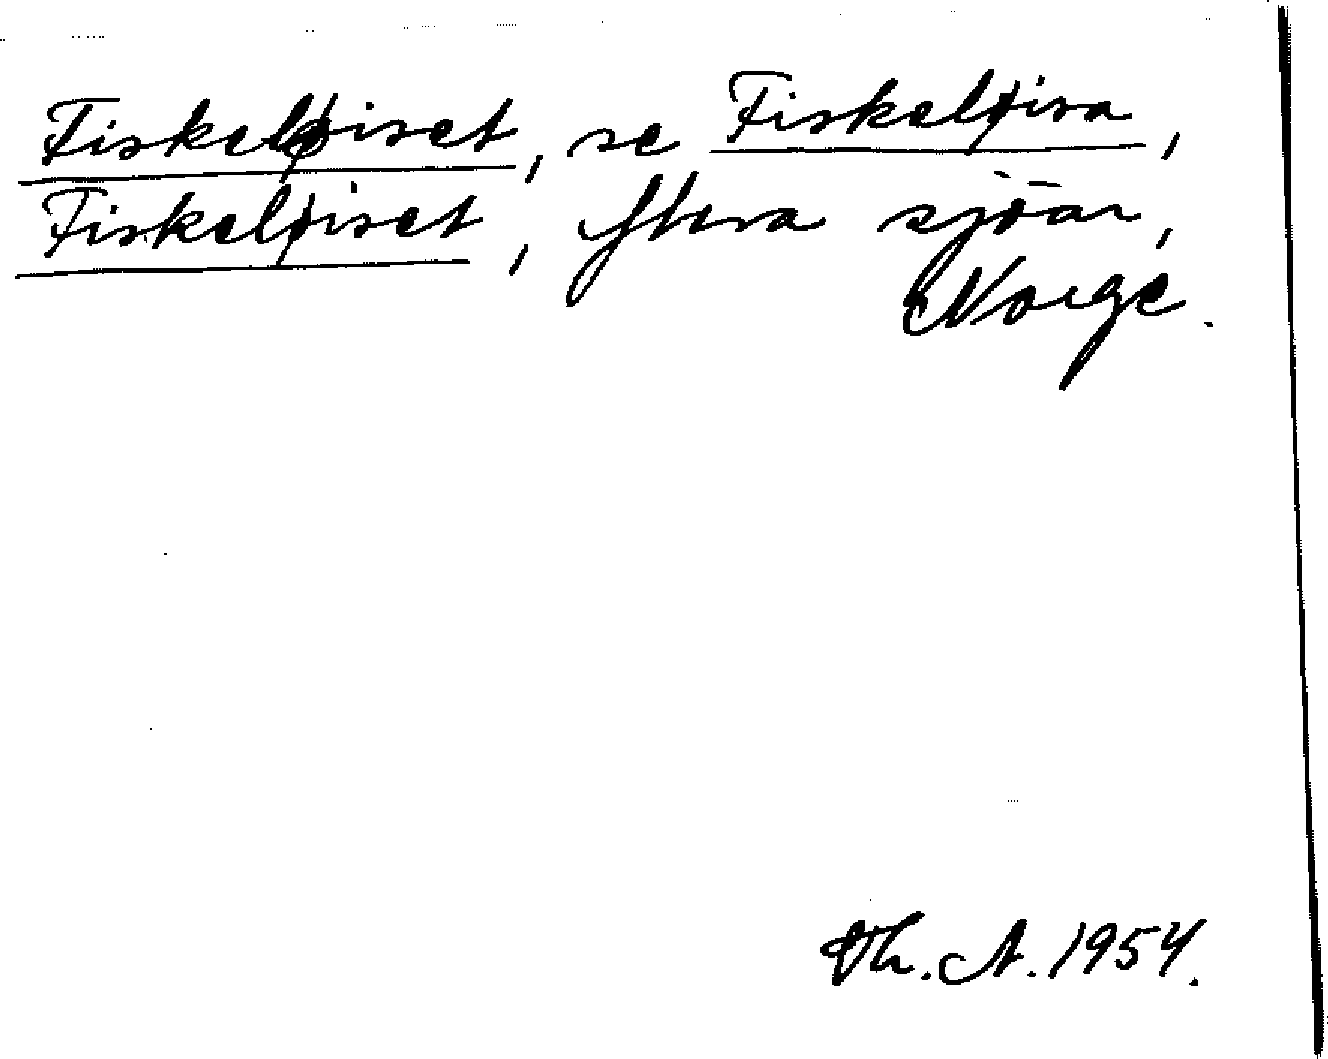 Fiskeløiset, se Fiskeløisa,
Fiskeløiset, flera sjöar,
Norge.
Th. A. 1954.